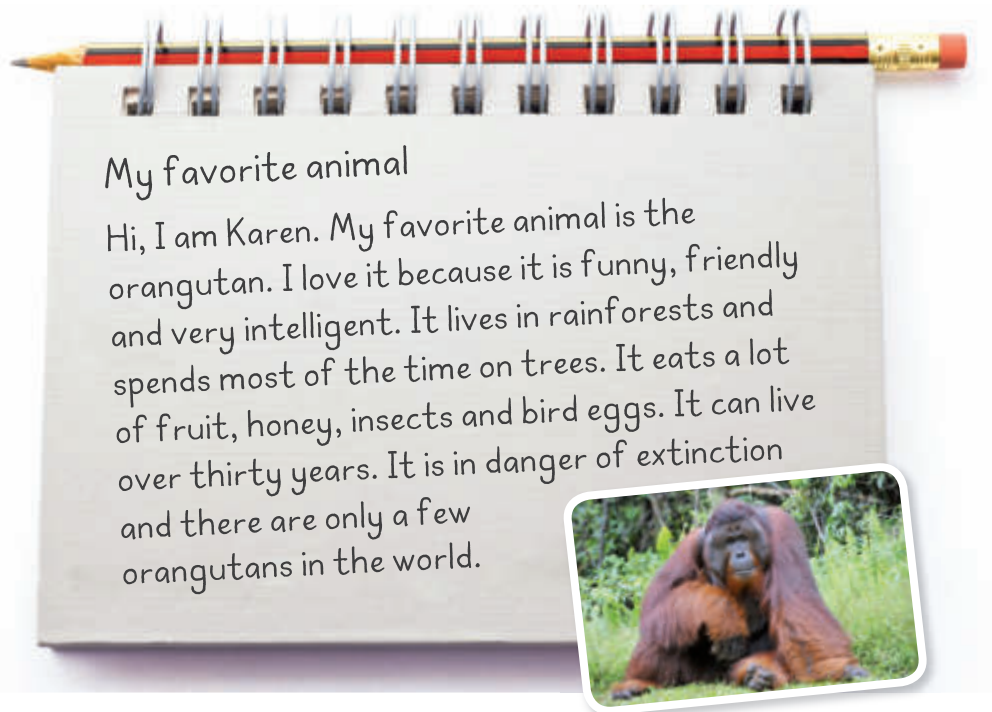 My favorite animal
Hi, I am Karen. My favorite animal is the
orangutan. I love it because it is funny, friendly
and very intelligent. It lives in rainforests and
spends most of the time on trees. It eats a lot
of fruit, honey, insects and bird eggs. It can live
over thirty years. It is in danger of extinction
and there are only a few
orangutans in the world.